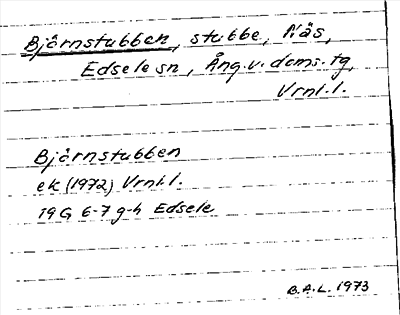 Björnstubben, stubbe, Näs,
Edsele sn, Ång.v. doms. tg,
Vrnl.l.
Björnstubben
ek (1972) Vrnl.l.
19G 6-7 g-h Edsele
B.A.L. 1973